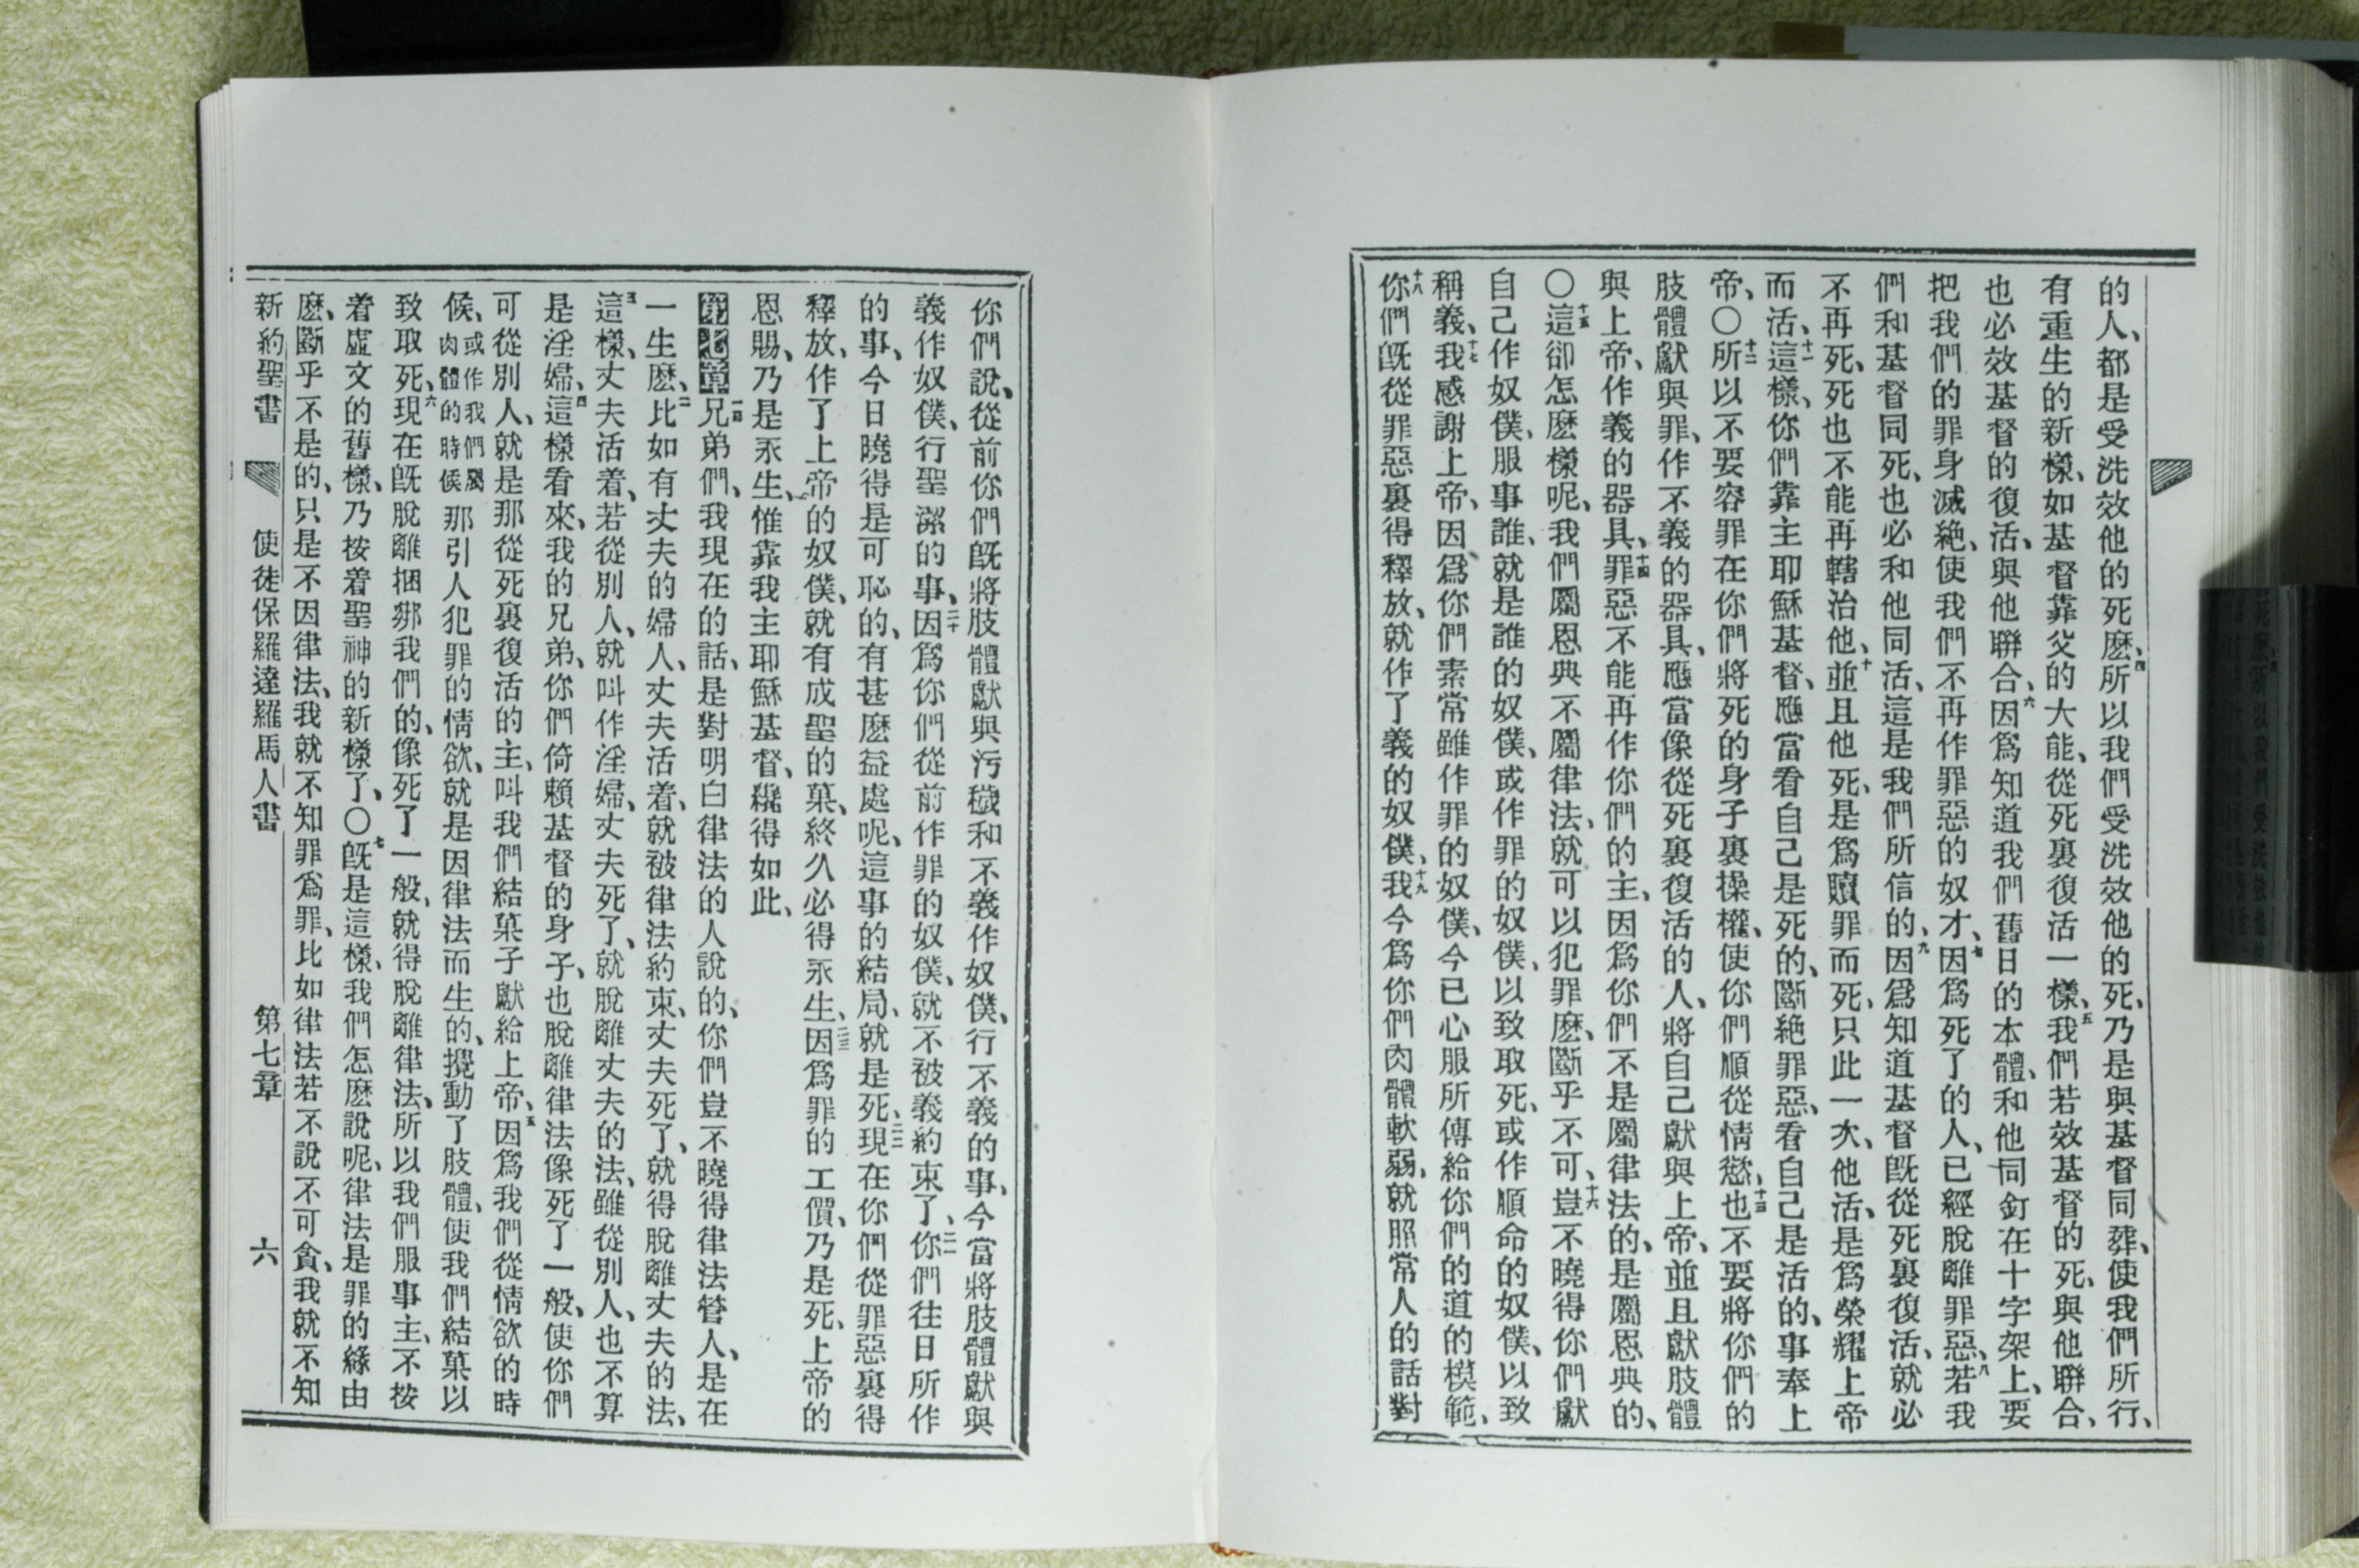 的人、都是受洗效他的死麽、四所以我們受洗效他的死、乃是與基督同葬、使我們所行、
有重生的新樣、如基督靠父的大能、從死裏復活一樣、五我們若效基督的死、與他聯合、
也必效基督的復活、與他聯合、六因爲知道我們舊日的本體、和他同釘在十字架上、要
把我們的罪身滅絶、使我們不再作罪惡的奴才、七因爲死了的人、已經脫離罪惡、八若我
們和基督同死、也必和他同活、這是我們所信的、九因爲知道基督旣從死裏復活、就必
不再死、死也不能再轄治他、十並且他死、是爲贖罪而死、只此一次、他活、是爲榮耀上帝
而活、十一這樣、你們靠主耶穌基督、應當看自己是死的、斷絶罪惡、看自己是活的、事奉上
帝、〇十二所以不要容罪在你們將死的身子裏操權、使你們順從情慾、十三也不要將你們的
肢體獻與罪、作不義的器具、應當像從死裏復活的人、將自己獻與上帝、並且獻肢體
與上帝、作義的器具、十四罪惡不能再作你們的主、因爲你們不是屬律法的、是屬恩典的、
〇十五這卻怎麽樣呢、我們屬恩典不屬律法、就可以犯罪麽、斷乎不可、十六豈不曉得你們獻
自己作奴僕、服事誰、就是誰的奴僕、或作罪的奴僕、以致取死、或作順命的奴僕、以致
稱義、十七我感謝上帝、因爲你們素常雖作罪的奴僕、今已心服所傳給你們的道的模範、
十八你們旣從罪惡裏得釋放、就作了義的奴僕、十九我今爲你們肉體軟弱、就照常人的話對
你們說、從前你們旣將肢體獻與污穢和不義作奴僕、行不義的事、今當將肢體獻與
義作奴僕、行聖潔的事、二十因爲你們從前作罪的奴僕、就不被義約束了、二一你們往日所作
的事、今日曉得是可恥的、有甚麽益處呢、這事的結局、就是死、二二現在你們從罪惡裏得
釋放、作了上帝的奴僕、就有成聖的菓、終久必得永生、二三因爲罪的工價、乃是死、上帝的
恩賜、乃是永生、惟靠我主耶穌基督、纔得如此、
第七章 一兄弟們、我現在的話、是對明白律法的人說的、你們豈不曉得律法管人、是在
一生麽、二比如有丈夫的婦人、丈夫活着、就被律法約束、丈夫死了、就得脫離丈夫的法、
三這樣、丈夫活着、若從別人、就叫作淫婦、丈夫死了、就脫離丈夫的法、雖從別人、也不算
是淫婦、四這樣看來、我的兄弟、你們倚賴基督的身子、也脫離律法像死了一般、使你們
可從別人、就是那從死裏復活的主、叫我們結菓子獻給上帝、五因爲我們從情欲的時
候、或作我們屬肉體的時候那引人犯罪的情欲、就是因律法而生的、攪動了肢體、使我們結菓以
致取死、六現在旣脫離捆綁我們的、像死了一般、就得脫離律法、所以我們服事主、不按
着虛文的舊樣、乃按着聖神的新樣了、〇七旣是這樣、我們怎麽說呢、律法是罪的緣由
麽、斷乎不是的、只是不因律法、我就不知罪爲罪、比如律法若不說不可貪、我就不知
新約聖書 使徒保羅達羅馬人書 第七章 六